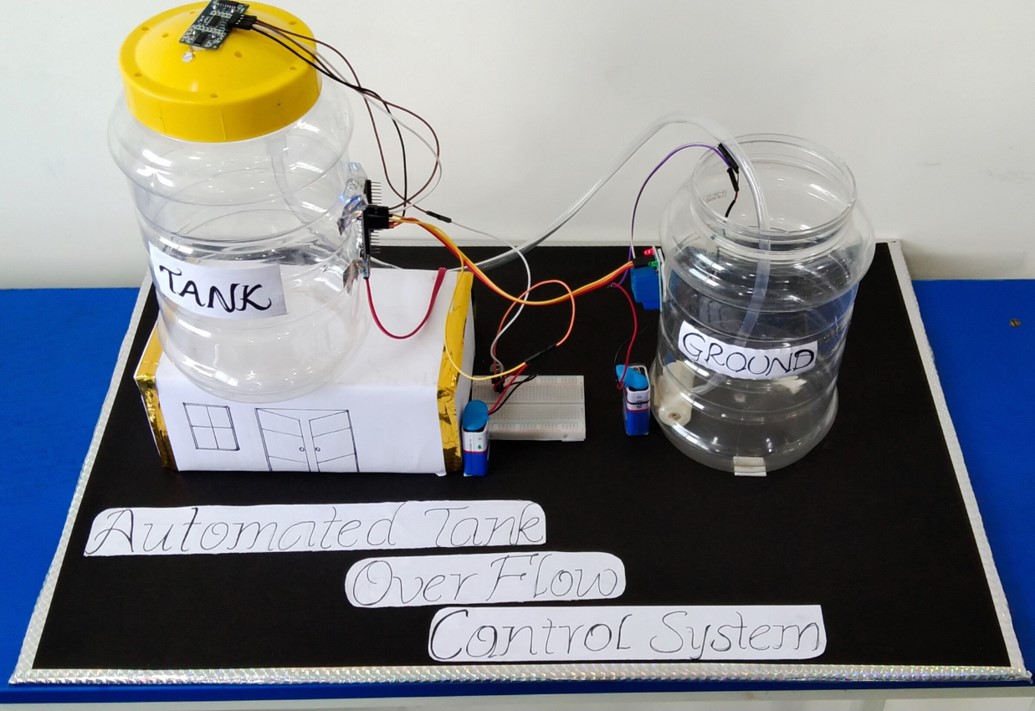 TANK
GROUND
Automated Tank
Over Flow
Control System